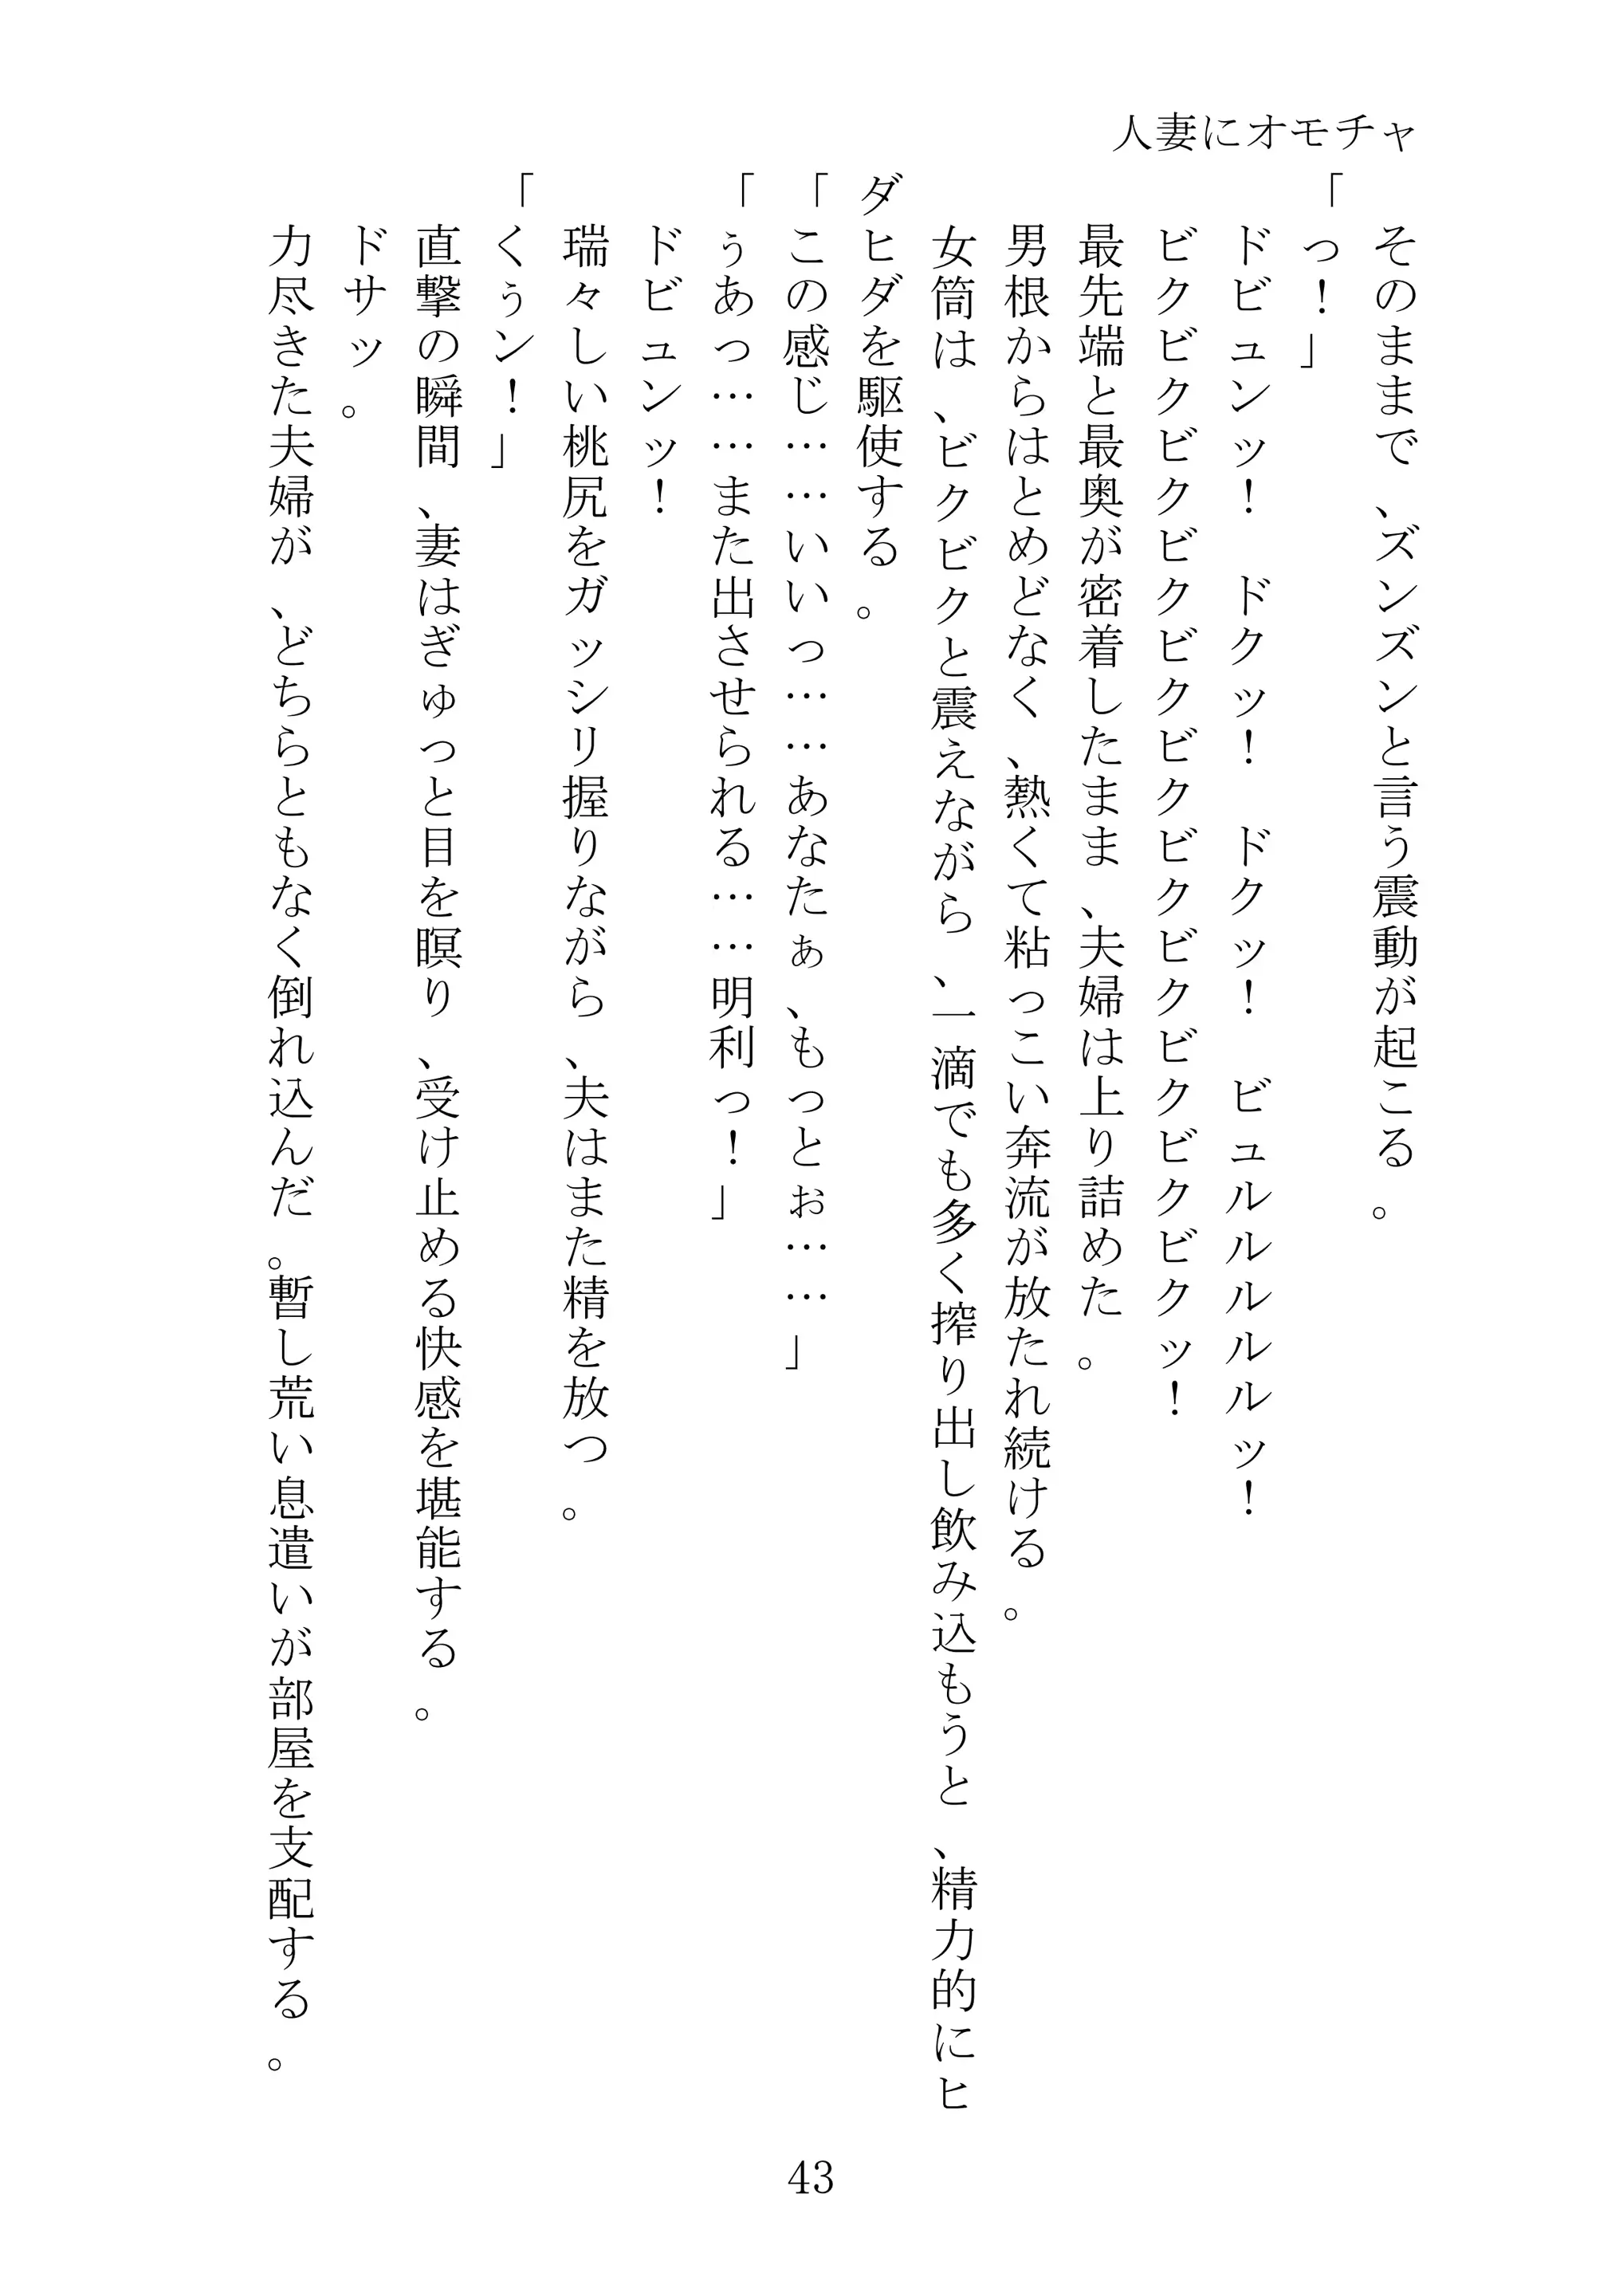 人妻にオモチャ
そのままで、ズンズンと言う震動が起こる。
「っ！」
ドビュンッ！　ドクッ！　ドクッ！　ビュルルルルルッ！
ビクビクビクビクビクビクビクビクビクビクビクッ！
最先端と最奥が密着したまま、夫婦は上り詰めた。
男根からはとめどなく、熱くて粘っこい奔流が放たれ続ける。
女筒は、ビクビクと震えながら、一滴でも多く搾り出し飲み込もうと、精力的にヒ
ダヒダを駆使する。
「この感じ……いいっ……あなたぁ、もっとぉ……」
「ぅあっ……また出させられる……明利っ！」
ドビュンッ！
瑞々しい桃尻をガッシリ握りながら、夫はまた精を放つ。
「くぅン！」
直撃の瞬間、妻はぎゅっと目を瞑り、受け止める快感を堪能する。
ドサッ。
力尽きた夫婦が、どちらともなく倒れ込んだ。暫し荒い息遣いが部屋を支配する。
43